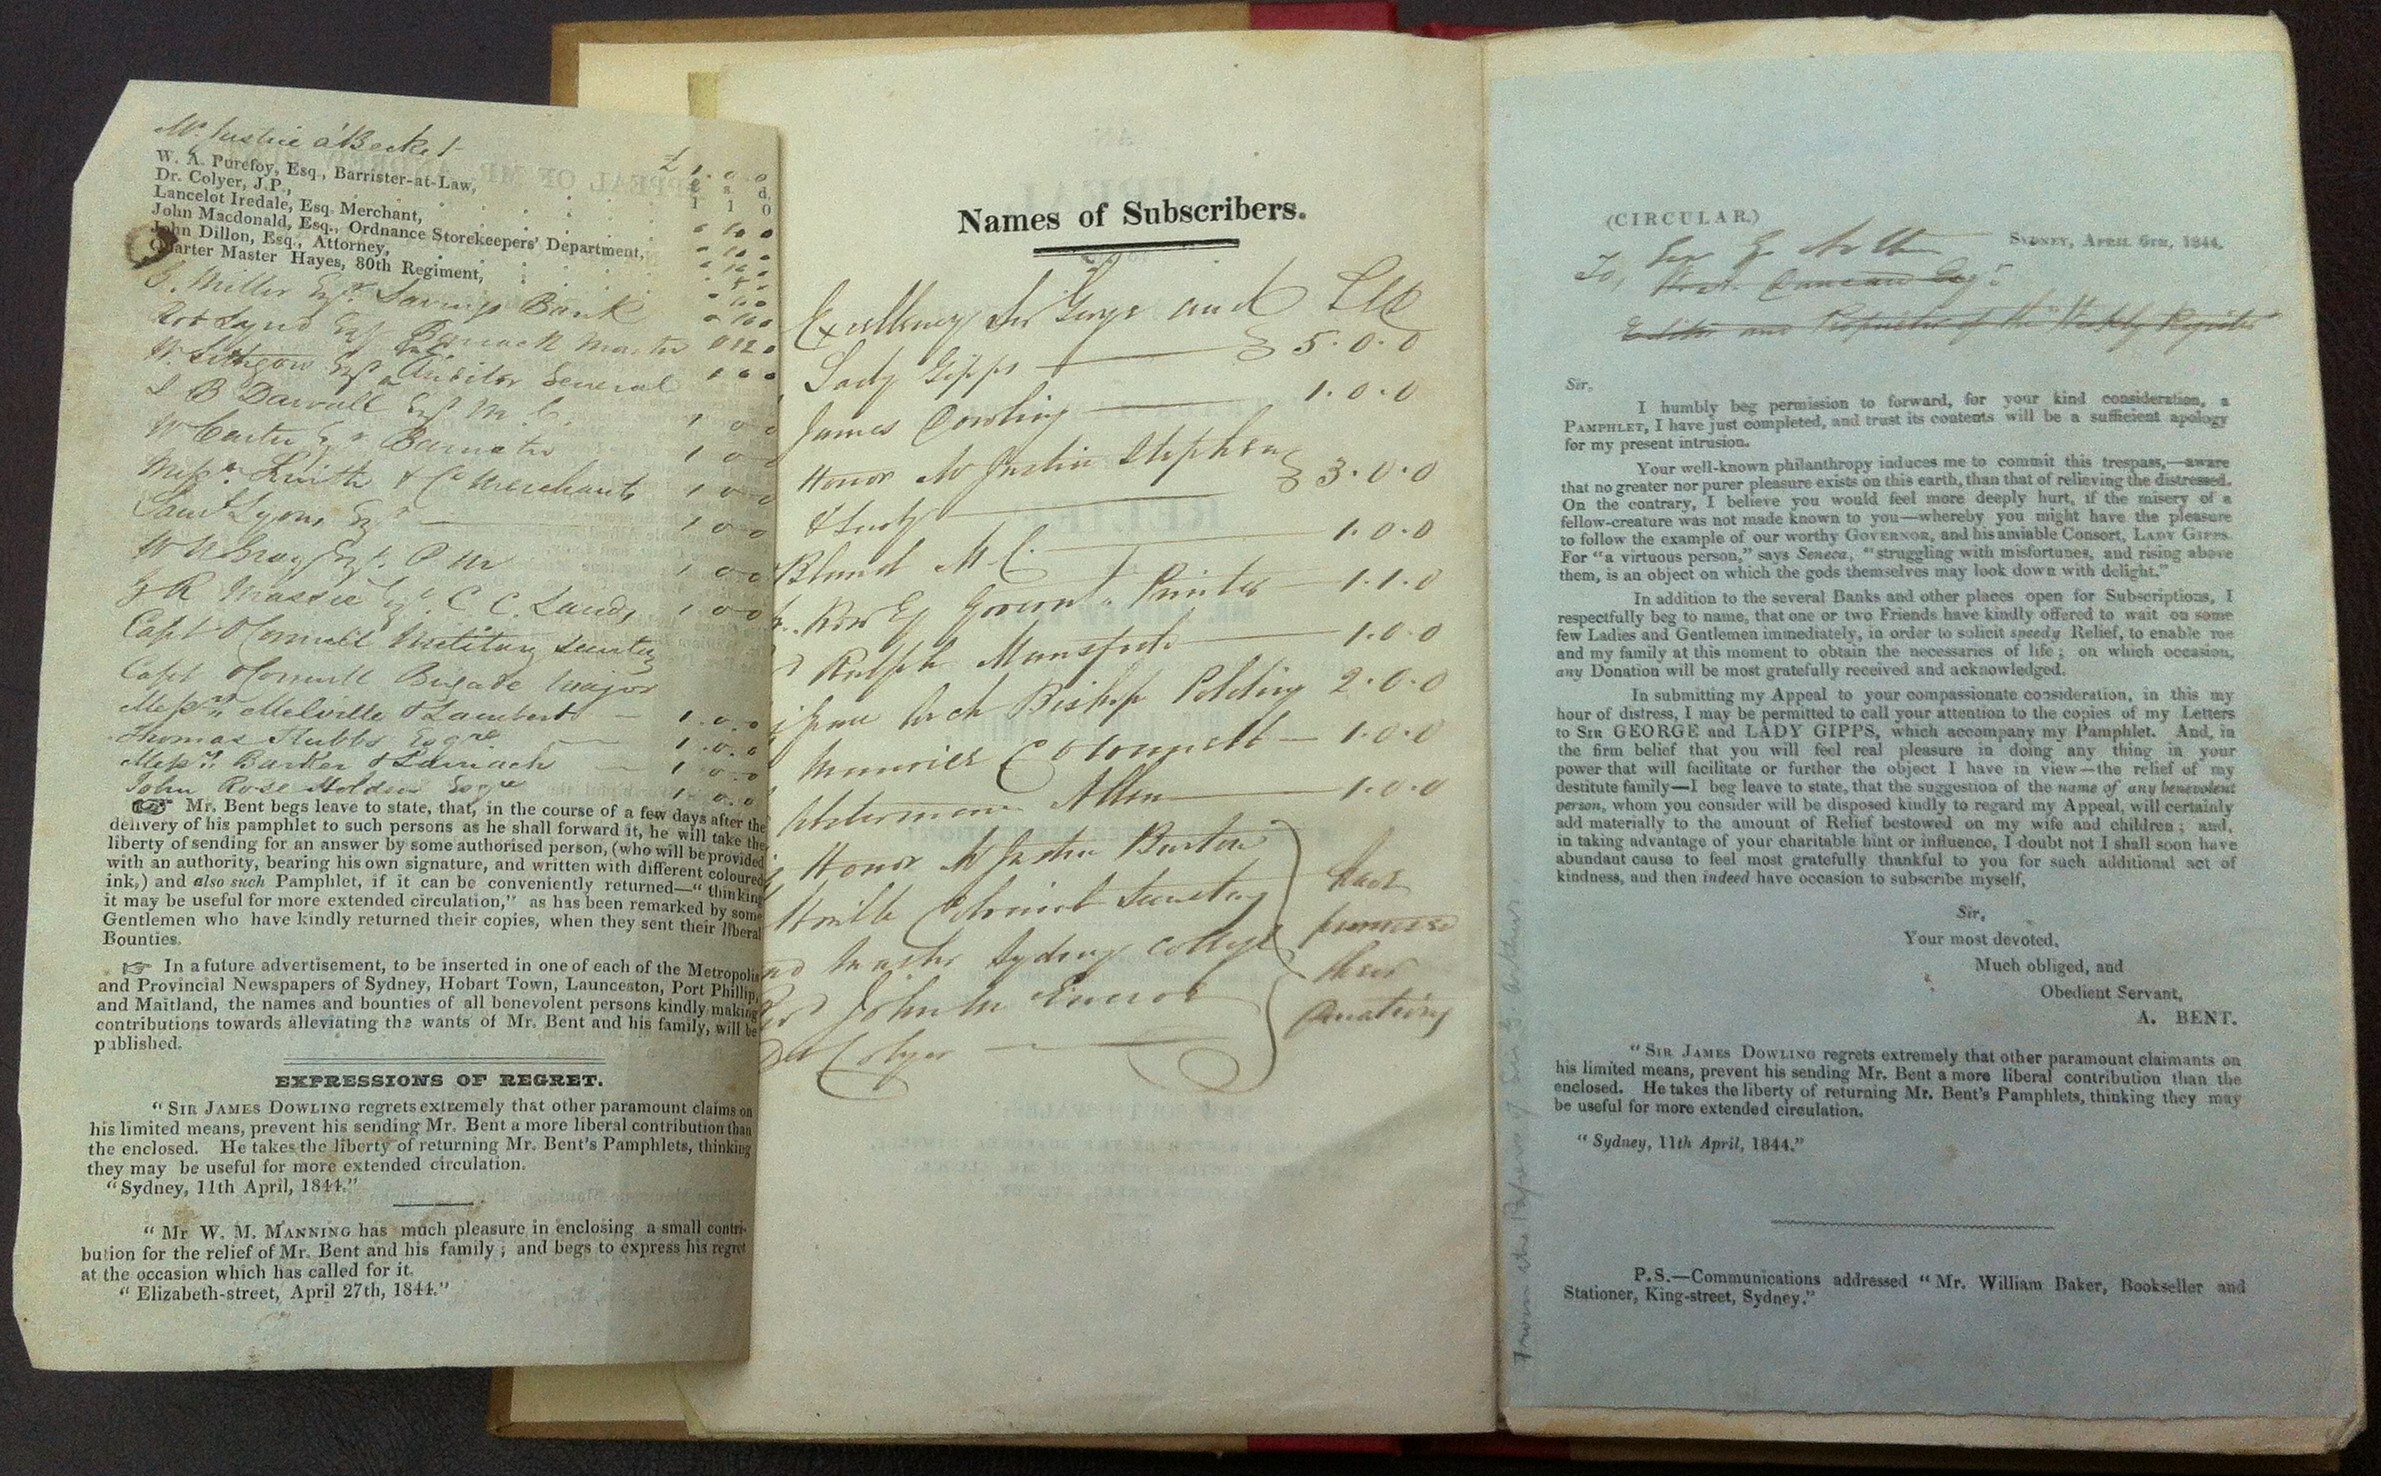 Mr. Justice a'Becket £ 1. 0. 0
£ s. d.
W. A. Purefoy, Esq., Barrister-at-Law, 1 1 0
Dr. Colyer, J.P.,
Lancelot Iredale, Esq. Merchant,
John Macdonald, Esq., Ordnance Storekeepers' Department,
John Dillon, Esq., Attorney,
Quarter Master Hayes, 80th Regiment,
G. Miller Esqr. Savings Bank
Barrack Master
W. Lithgow Esqr Auditor General 1 0 0
J B Darvall Esqr M. C. 1 0 0
W Carter Esqr Barrister 1 0 0
Messrs. Smith & Co Merchants 1 0 0
Saml. Lyons Esqr 1 0 0
W N Gray Esqr. P M 1 0 0
Massie Esqr. C C. Lands, 1 0 0
Capt O'Connell Military Secretary
Capt O'Connell Brigade Major
Messrs. Melville & Lambert — 1. 0. 0
Thomas Stubbs Esqre — 1. 0. 0
Messrs. Barker & Larnach — 1 0. 0
John Rose Holden Esqre 1. 0. 0
☞ Mr. Bent begs leave to state, that, in the course of a few days after the
delivery of his pamphlet to such persons as he shall forward it, he will take the
liberty of sending for an answer by some authorised person, (who will be provided
with an authority, bearing his own signature, and written with different coloured
ink,) and also such Pamphlet, if it can be conveniently returned—“ thinking
it may be useful for more extended circulation,” as has been remarked by some
Gentlemen who have kindly returned their copies, when they sent their liberal
Bounties.
☞ In a future advertisement, to be inserted in one of each of the Metropolis
and Provincial Newspapers of Sydney, Hobart Town, Launceston, Port Phillip,
and Maitland, the names and bounties of all benevolent persons kindly making
contributions towards alleviating the wants of Mr. Bent and his family, will be
published.
EXPRESSIONS OF REGRET.
“ SIR JAMES DOWLING regrets extremely that other paramount claims on
his limited means, prevent his sending Mr. Bent a more liberal contribution than
the enclosed. He takes the liberty of returning Mr. Bent's Pamphlets, thinking
they may be useful for more extended circulation.
“ Sydney, 11th April, 1844.”
“ Mr W. M. MANNING has much pleasure in enclosing a small contri-
bution for the relief of Mr. Bent and his family ; and begs to express his regret
at the occasion which has called for it.
“ Elizabeth-street, April 27th, 1844.”
Names of Subscribers.
Excellency Sir George and
Lady Gipps 5. 0. 0
James Dowling 1. 0. 0
Honor Mr Justice Stephen
& Lady 3. 0. 0
Bland M. C. 1. 0. 0
Row Esq Governt. Printer 1. 1. 0
Ralph Mansfield 1. 0. 0
Grace Arch Bishop Polding 2. 0. 0
Maurice C O'Connell — 1. 0. 0
Alderman Allen 1. 0. 0
Honor Mr Justice Burton
Honble Colonial Secretary
Master Sydney College
John M Encroe
Colyer
have
promised
their
donations
(CIRCULAR.)
SYDNEY, APRIL 6TH, 1844.
To, Sir G. Arthur
Duncan Esqr.
Editor and Proprietor of the "Weekly Register"
Sir,
I humbly beg permission to forward, for your kind consideration, a
PAMPHLET, I have just completed, and trust its contents will be a sufficient apology
for my present intrusion.
Your well-known philanthropy induces me to commit this trespass,—aware
that no greater nor purer pleasure exists on this earth, than that of relieving the distressed.
On the contrary, I believe you would feel more deeply hurt, if the misery of a
fellow-creature was not made known to you—whereby you might have the pleasure
to follow the example of our worthy GOVERNOR, and his amiable Consort, LADY GIPPS.
For “a virtuous person,” says Seneca, “struggling with misfortunes, and rising above
them, is an object on which the gods themselves may look down with delight.”
In addition to the several Banks and other places open for Subscriptions, I
respectfully beg to name, that one or two Friends have kindly offered to wait on some
few Ladies and Gentlemen immediately, in order to solicit speedy Relief, to enable me
and my family at this moment to obtain the necessaries of life ; on which occasion,
any Donation will be most gratefully received and acknowledged.
In submitting my Appeal to your compassionate consideration, in this my
hour of distress, I may be permitted to call your attention to the copies of my Letters
to SIR GEORGE and LADY GIPPS, which accompany my Pamphlet. And, in
the firm belief that you will feel real pleasure in doing any thing in your
power that will facilitate or further the object I have in view—the relief of my
destitute family—I beg leave to state, that the suggestion of the name of any benevolent
person, whom you consider will be disposed kindly to regard my Appeal, will certainly
add materially to the amount of Relief bestowed on my wife and children ; and,
in taking advantage of your charitable hint or influence, I doubt not I shall soon have
abundant cause to feel most gratefully thankful to you for such additional act of
kindness, and then indeed have occasion to subscribe myself,
Sir,
Your most devoted,
Much obliged, and
Obedient Servant,
A. BENT.
“SIR JAMES DOWLING regrets extremely that other paramount claimants on
his limited means, prevent his sending Mr. Bent a more liberal contribution than the
enclosed. He takes the liberty of returning Mr. Bent's Pamphlets, thinking they may
be useful for more extended circulation.
“ Sydney, 11th April, 1844.”
P.S.—Communications addressed “ Mr. William Baker, Bookseller and
Stationer, King-street, Sydney.”
From the Papers of Sir G. Arthur.